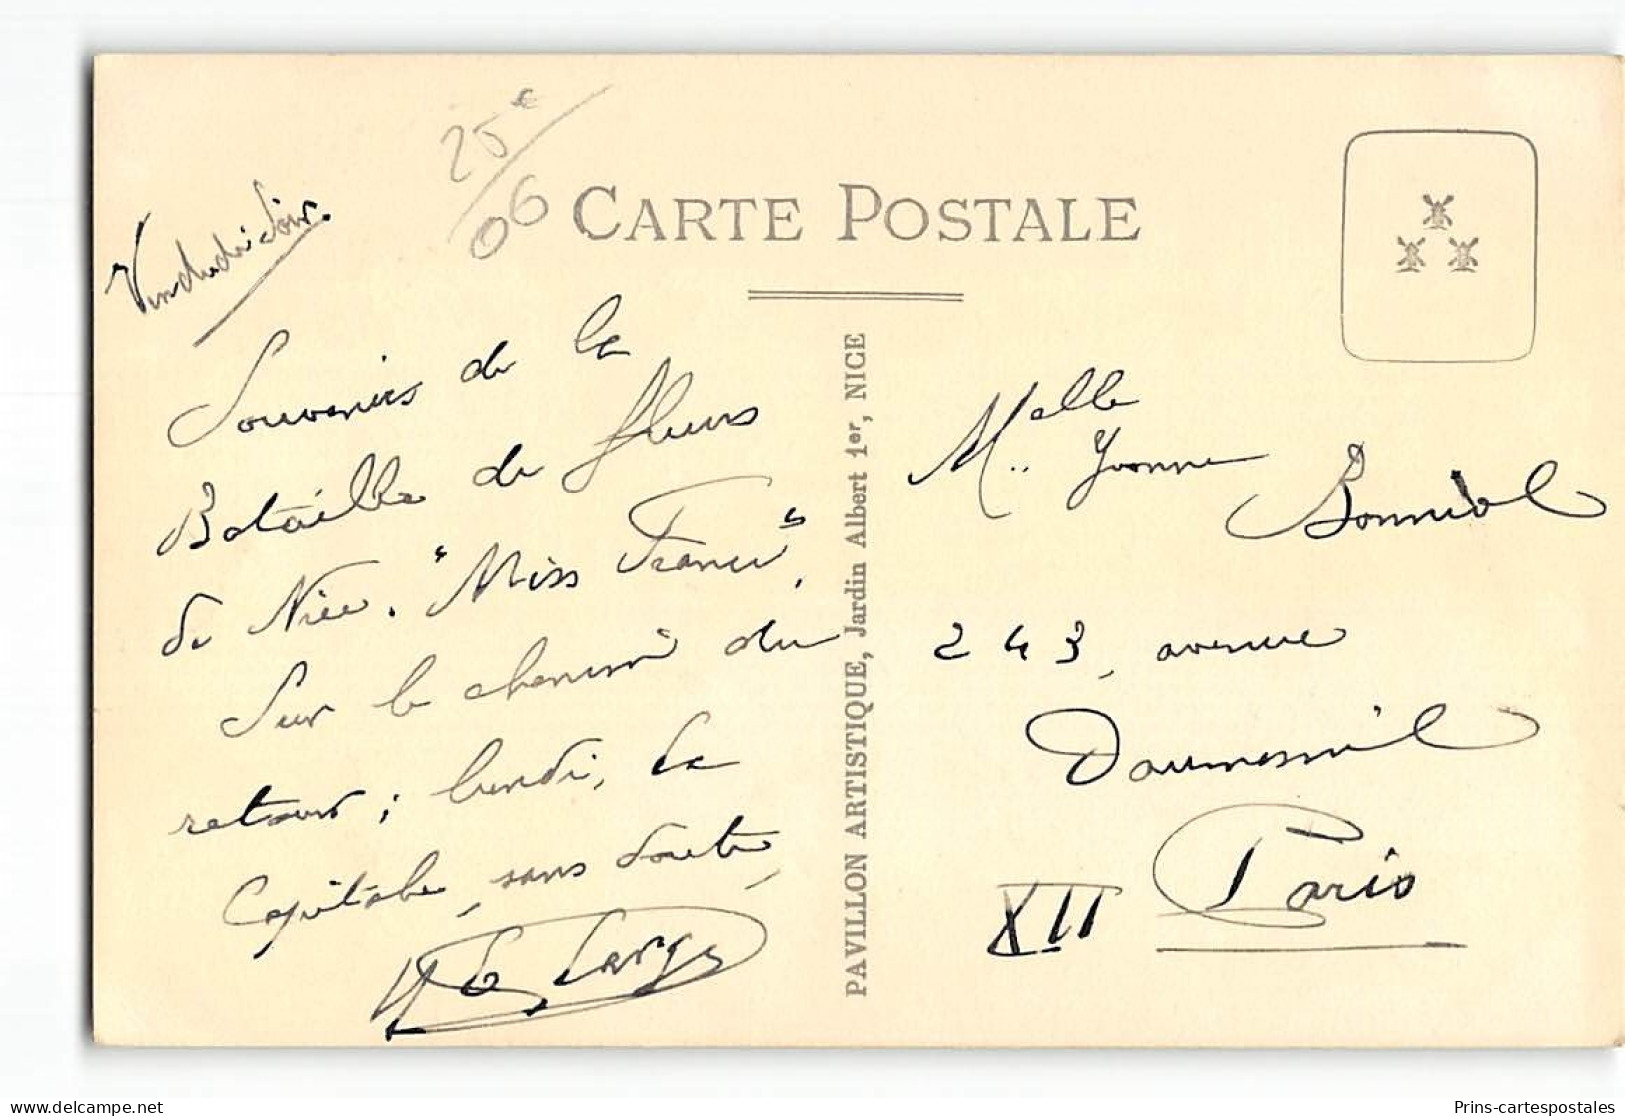 25€
06
CARTE POSTALE
Vendredi soir.
Souvenirs de la
Bataille de fleurs
de Nice. "Miss France",
Sur le chemin du
retour; lundi, la
Capitale, sans doute,
PAVILLON ARTISTIQUE, Jardin Albert 1er, NICE
Melle Yvonne
243, avenue
Daumesnil
Paris
XII
Prins-cartespostales
delcampe.net